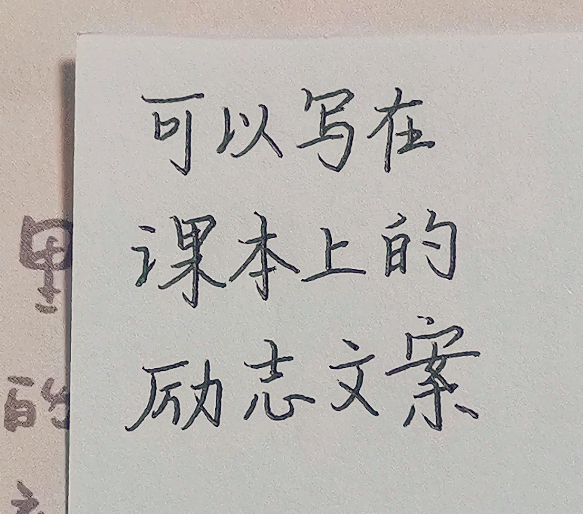 可以写在
课本上的
励志文案
的